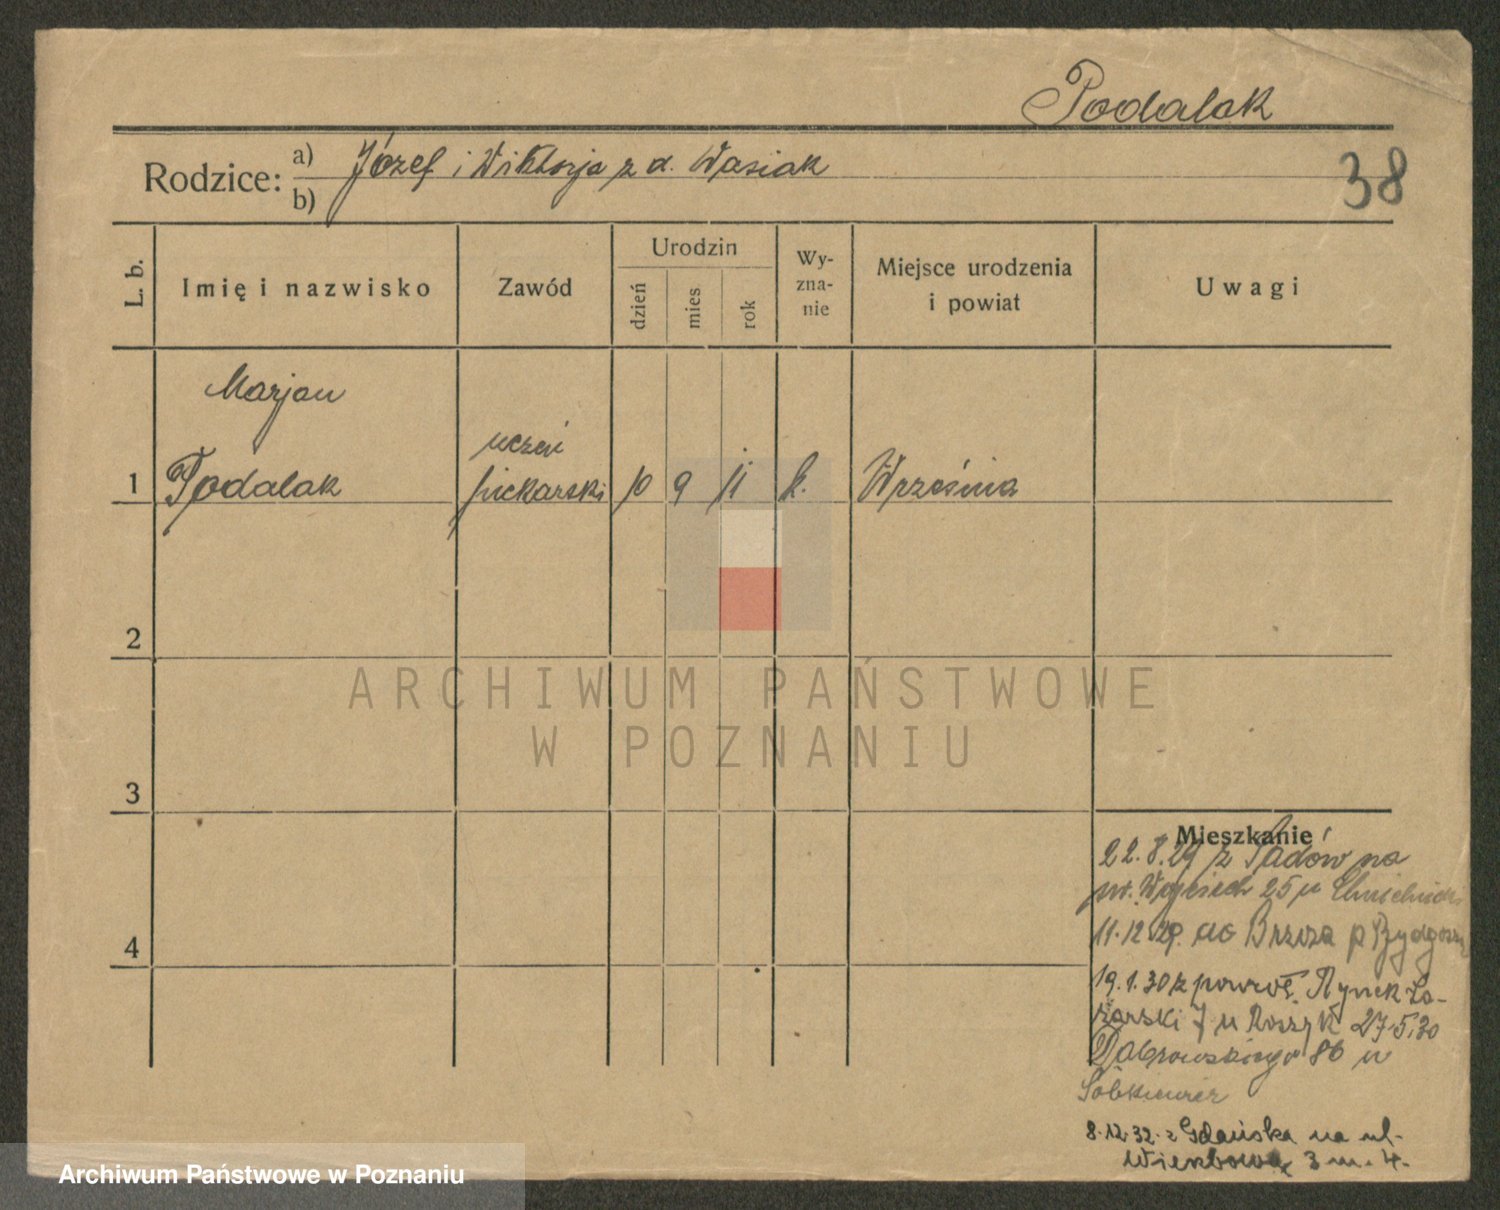 Podalak
Rodzice: a) Józef i Wiktorja z d. Wasiak
b)
38
L. b.
Imię i nazwisko
Zawód
Urodzin
dzień
mies
rok
Wy-
zna-
nie
Miejsce urodzenia
i powiat
Uwagi
Marjan
uczeń
1 Podalak piekarski 10 9 11 k. Września
2
ARCHIWUM PAŃSTWOWE
W POZNANIU
3
Mieszkanie
22.8.29 z na
św. Wojciech 25 u
4
11.12.29. do Brzoza p Bydgoszcz
19.1.30 z powrot. Rynek Ła-
zarski 7 u 27.5.30
Dąbrowskiego 86 u
8.12.32. z Gdańska na ul.
3 m. 4.
Archiwum Państwowe w Poznaniu